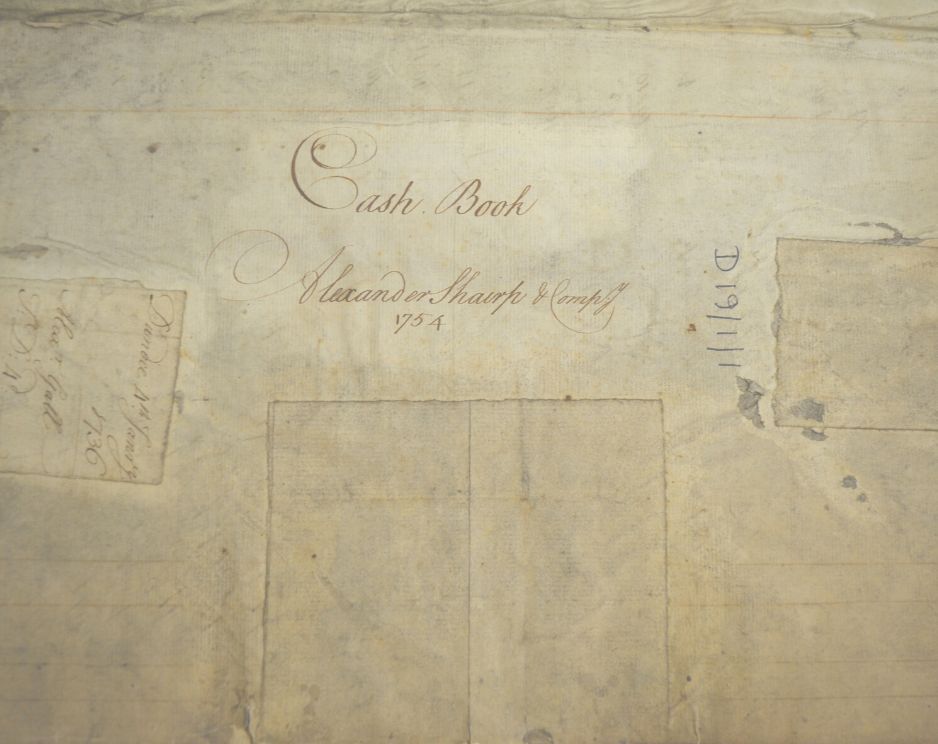 Cash Book
Alexander Shairp & Compy
1754
D19/1/1
Dundee
Jan'y
1736
Galt